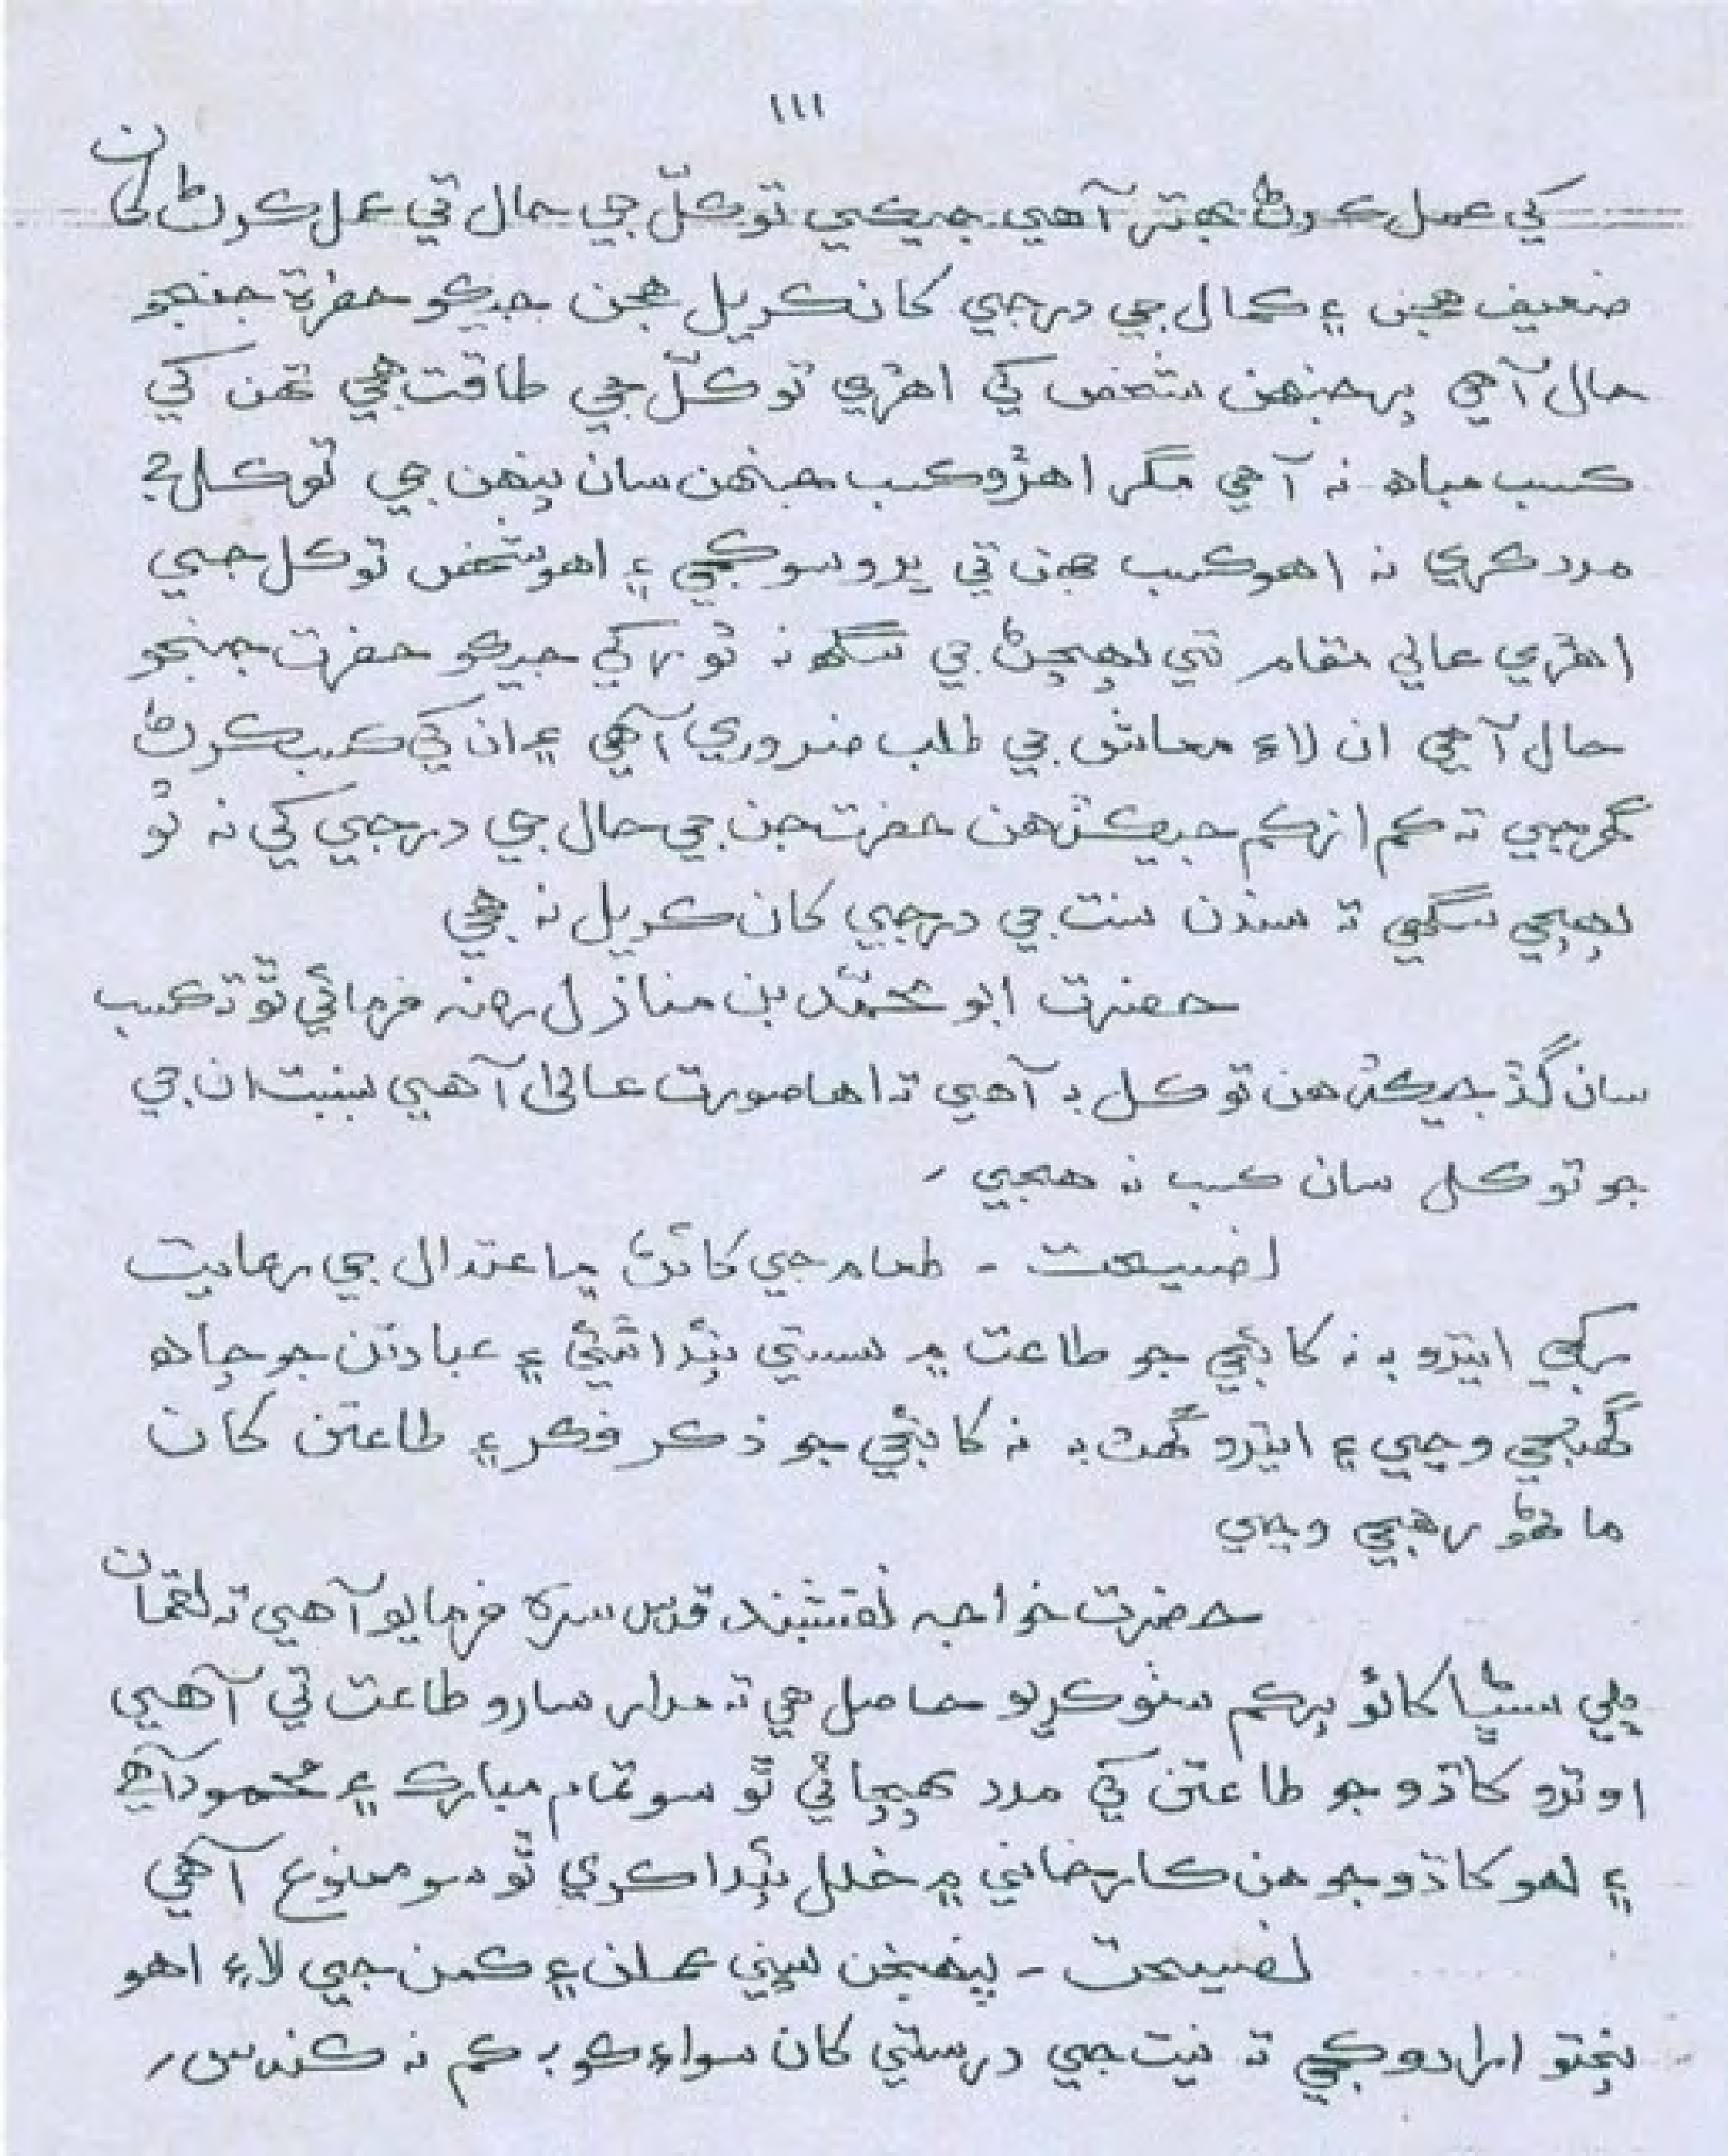 ۱۱۱
کي عمل ڪرڻ بهتر آهي جيڪي توڪلّ جي حال تي عمل ڪرڻ کان
ضعيف هجن ۽ ڪمال جي درجي کان ڪريل هجن جيڪو حضرة جنجو
حال آهي پر جنهن شخص کي اهڙي توڪلّ جي طاقت هجي تهن کي
ڪسب مباح نه آهي مگر اهڙو ڪسب جنهن سان پنهن جي توڪل ۾
مدد ڪري نه اهو ڪسب جهن تي ڀروسو ڪجي ۽ اهو شخص توڪل جي
اهڙي عالي مقام تي پهچڻ جي سگهه نه ٿو رکي جيڪو حضرت جنجو
حال آهي ان لاءِ معاش جي طلب ضروري آهي ۽ ان کي ڪسب ڪرڻ
گهرجي ته ڪم از ڪم جيڪڏهن حضرت جن جي حال جي درجي کي نه ٿو
پهچي سگهي ته سندن سنت جي درجي کان ڪريل نه هجي
حضرت ابو محمّد بن منازل رضه فرمائي ٿو ته ڪسب
سان گڏ جيڪڏهن توڪل به آهي ته اها صورت عاليٰ آهي بنسبت ان جي
جو توڪل سان ڪسب نه هجي
نصيحت - طعام جي کائڻ ۾ اعتدال جي رعايت
رکجي ايترو به نه کائجي جو طاعت ۾ سستي پيدا ٿئي ۽ عبادتن جو چاه
گهٽجي وڃي ۽ ايترو گهٽ به نه کائجي جو ذڪر فڪر ۽ طاعتن کان
ماڻهو رهجي وڃي
حضرت خواجه نقشبند قدس سره فرمايو آهي ته لقمان
ڀلي سٺا کائو پر ڪم سٺو ڪريو حاصل هي ته مدار سارو طاعت تي آهي
اوترو کاڌو جو طاعتن کي مدد پهچائي ٿو سو تمام مبارڪ ۽ محمود آهي
۽ اهو کاڌو جو هن ڪارخاني ۾ خلل پيدا ڪري ٿو سو ممنوع آهي
نصيحت - پنهنجن سڀني عملن ۽ ڪمن جي لاءِ اهو
پختو ارادو ڪجي ته نيت جي درستي کان سواءِ ڪو به ڪم نه ڪندس